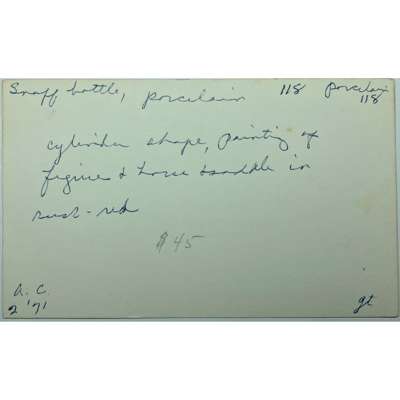 Snuff bottle, porcelain 118 porcelain
118
cylinder shape, painting of
figures & horse & saddle in
rust-red
$45
A. C.
2 '71
gt